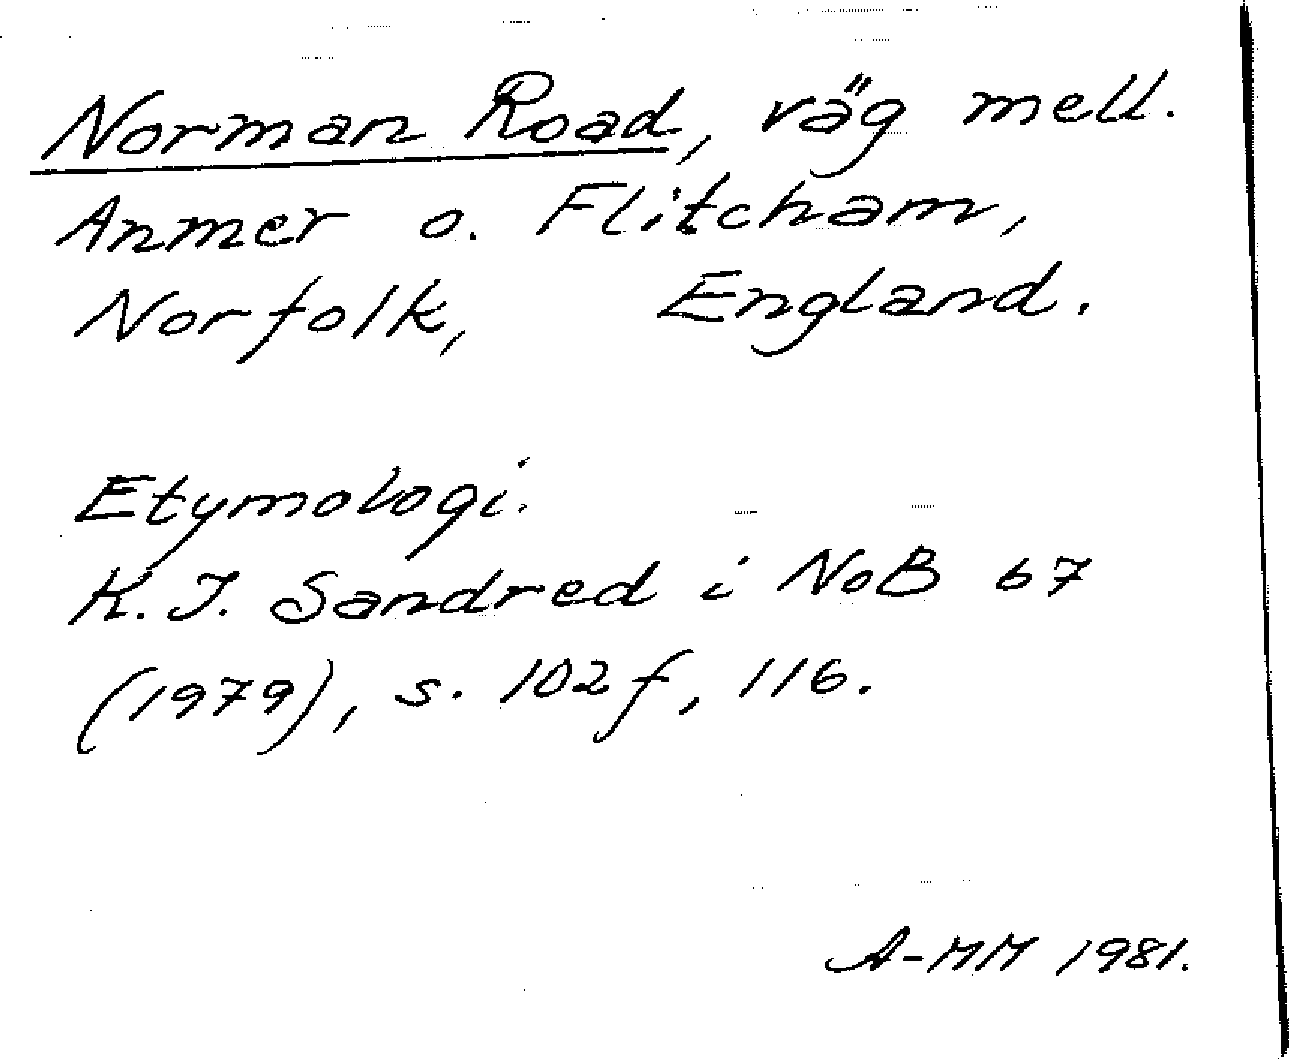 Norman Road, väg mell.
Anmer o. Flitcham,
Norfolk, England.
Etymologi.
K. I. Sandred i NoB 67
(1979), s. 102 f, 116.
A-MM 1981.